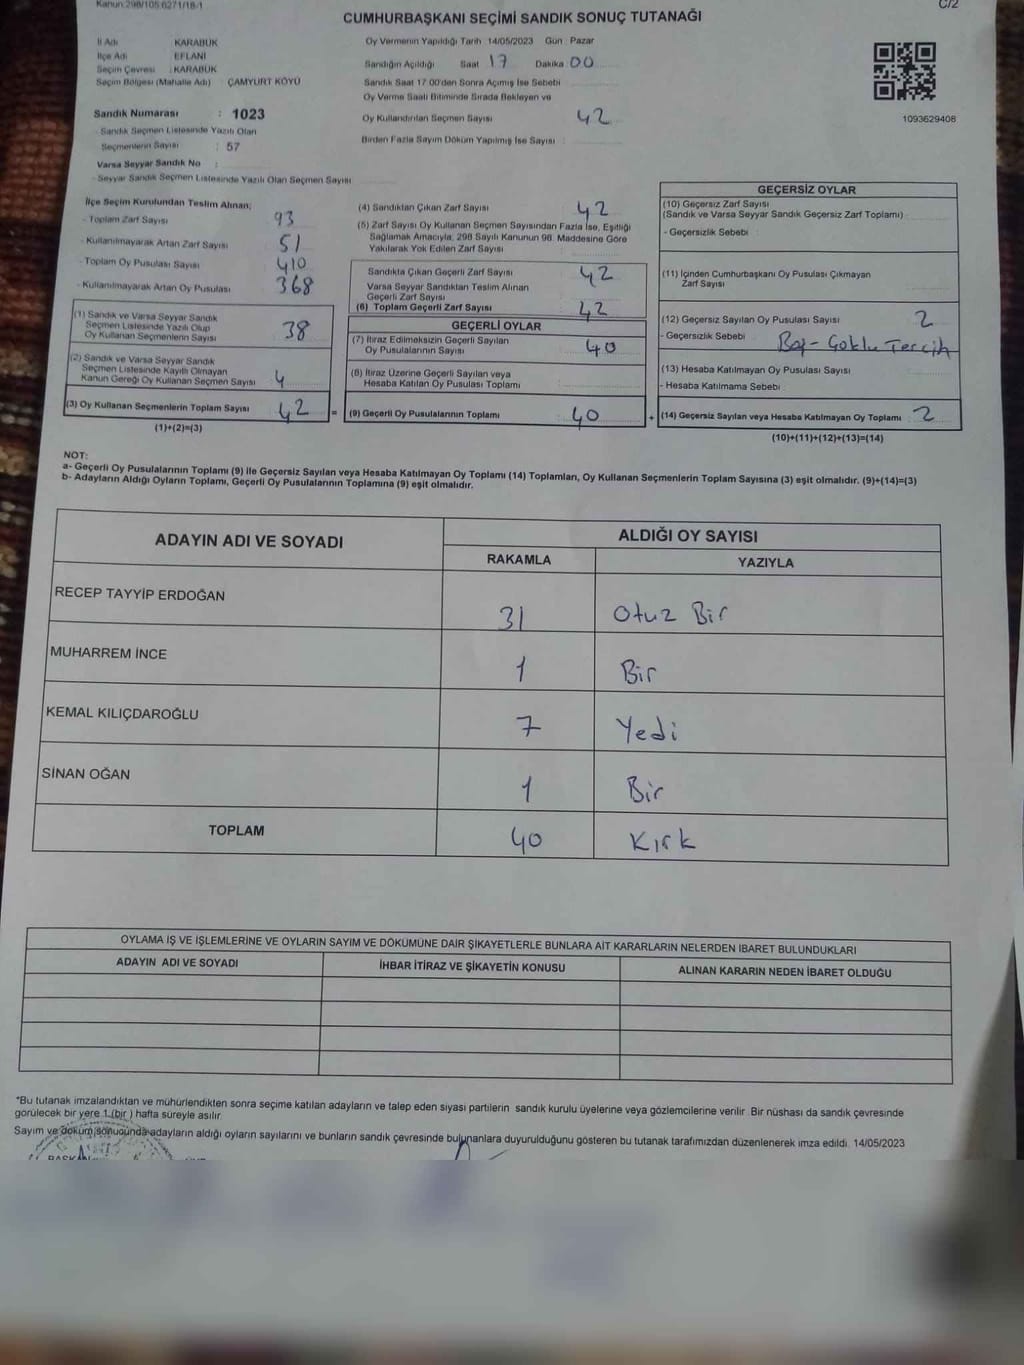 Kanun:298/105,6271/18-1
C/2
CUMHURBAŞKANI SEÇİMİ SANDIK SONUÇ TUTANAĞI
İl Adı : KARABÜK
İlçe Adı : EFLANİ
Seçim Çevresi : KARABÜK
Seçim Bölgesi (Mahalle Adı) : ÇAMYURT KÖYÜ
Sandık Numarası : 1023
- Sandık Seçmen Listesinde Yazılı Olan
Seçmenlerin Sayısı : 57
Varsa Seyyar Sandık No :
- Seyyar Sandık Seçmen Listesinde Yazılı Olan Seçmen Sayısı
Oy Vermenin Yapıldığı Tarih : 14/05/2023 Gün : Pazar
Sandığın Açıldığı Saat 17 Dakika 00
Sandık Saat 17:00'den Sonra Açılmış İse Sebebi
Oy Verme Saati Bitiminde Sırada Bekleyen ve
Oy Kullandırılan Seçmen Sayısı 42
Birden Fazla Sayım Döküm Yapılmış İse Sayısı :
1093629408
İlçe Seçim Kurulundan Teslim Alınan;
- Toplam Zarf Sayısı 93
- Kullanılmayarak Artan Zarf Sayısı 51
- Toplam Oy Pusulası Sayısı 410
- Kullanılmayarak Artan Oy Pusulası 368
(1) Sandık ve Varsa Seyyar Sandık
Seçmen Listesinde Yazılı Olup
Oy Kullanan Seçmenlerin Sayısı 38
(2) Sandık ve Varsa Seyyar Sandık
Seçmen Listesinde Kayıtlı Olmayan
Kanun Gereği Oy Kullanan Seçmen Sayısı 4
(3) Oy Kullanan Seçmenlerin Toplam Sayısı 42 =
(1)+(2)=(3)
(4) Sandıktan Çıkan Zarf Sayısı 42
(5) Zarf Sayısı Oy Kullanan Seçmen Sayısından Fazla İse, Eşitliği
Sağlamak Amacıyla; 298 Sayılı Kanunun 98. Maddesine Göre
Yakılarak Yok Edilen Zarf Sayısı
Sandıkta Çıkan Geçerli Zarf Sayısı 42
Varsa Seyyar Sandıktan Teslim Alınan
Geçerli Zarf Sayısı
(6) Toplam Geçerli Zarf Sayısı 42
GEÇERLİ OYLAR
(7) İtiraz Edilmeksizin Geçerli Sayılan
Oy Pusulalarının Sayısı 40
(8) İtiraz Üzerine Geçerli Sayılan veya
Hesaba Katılan Oy Pusulası Toplamı
(9) Geçerli Oy Pusulalarının Toplamı 40 +
GEÇERSİZ OYLAR
(10) Geçersiz Zarf Sayısı
(Sandık ve Varsa Seyyar Sandık Geçersiz Zarf Toplamı)
- Geçersizlik Sebebi :
(11) İçinden Cumhurbaşkanı Oy Pusulası Çıkmayan
Zarf Sayısı
(12) Geçersiz Sayılan Oy Pusulası Sayısı 2
- Geçersizlik Sebebi : Boş - Çoklu Tercih
(13) Hesaba Katılmayan Oy Pusulası Sayısı
- Hesaba Katılmama Sebebi :
(14) Geçersiz Sayılan veya Hesaba Katılmayan Oy Toplamı : 2
(10)+(11)+(12)+(13)=(14)
NOT:
a- Geçerli Oy Pusulalarının Toplamı (9) ile Geçersiz Sayılan veya Hesaba Katılmayan Oy Toplamı (14) Toplamları, Oy Kullanan Seçmenlerin Toplam Sayısına (3) eşit olmalıdır. (9)+(14)=(3)
b- Adayların Aldığı Oyların Toplamı, Geçerli Oy Pusulalarının Toplamına (9) eşit olmalıdır.
ADAYIN ADI VE SOYADI ALDIĞI OY SAYISI
RAKAMLA YAZIYLA
RECEP TAYYİP ERDOĞAN 31 Otuz Bir
MUHARREM İNCE 1 Bir
KEMAL KILIÇDAROĞLU 7 Yedi
SİNAN OĞAN 1 Bir
TOPLAM 40 Kırk
OYLAMA İŞ VE İŞLEMLERİNE VE OYLARIN SAYIM VE DÖKÜMÜNE DAİR ŞİKAYETLERLE BUNLARA AİT KARARLARIN NELERDEN İBARET BULUNDUKLARI
ADAYIN ADI VE SOYADI İHBAR İTİRAZ VE ŞİKAYETİN KONUSU ALINAN KARARIN NEDEN İBARET OLDUĞU
*Bu tutanak imzalandıktan ve mühürlendikten sonra seçime katılan adayların ve talep eden siyasi partilerin sandık kurulu üyelerine veya gözlemcilerine verilir. Bir nüshası da sandık çevresinde
görülecek bir yere 1 (bir) hafta süreyle asılır.
Sayım ve döküm sonucunda adayların aldığı oyların sayılarını ve bunların sandık çevresinde bulunanlara duyurulduğunu gösteren bu tutanak tarafımızdan düzenlenerek imza edildi. 14/05/2023